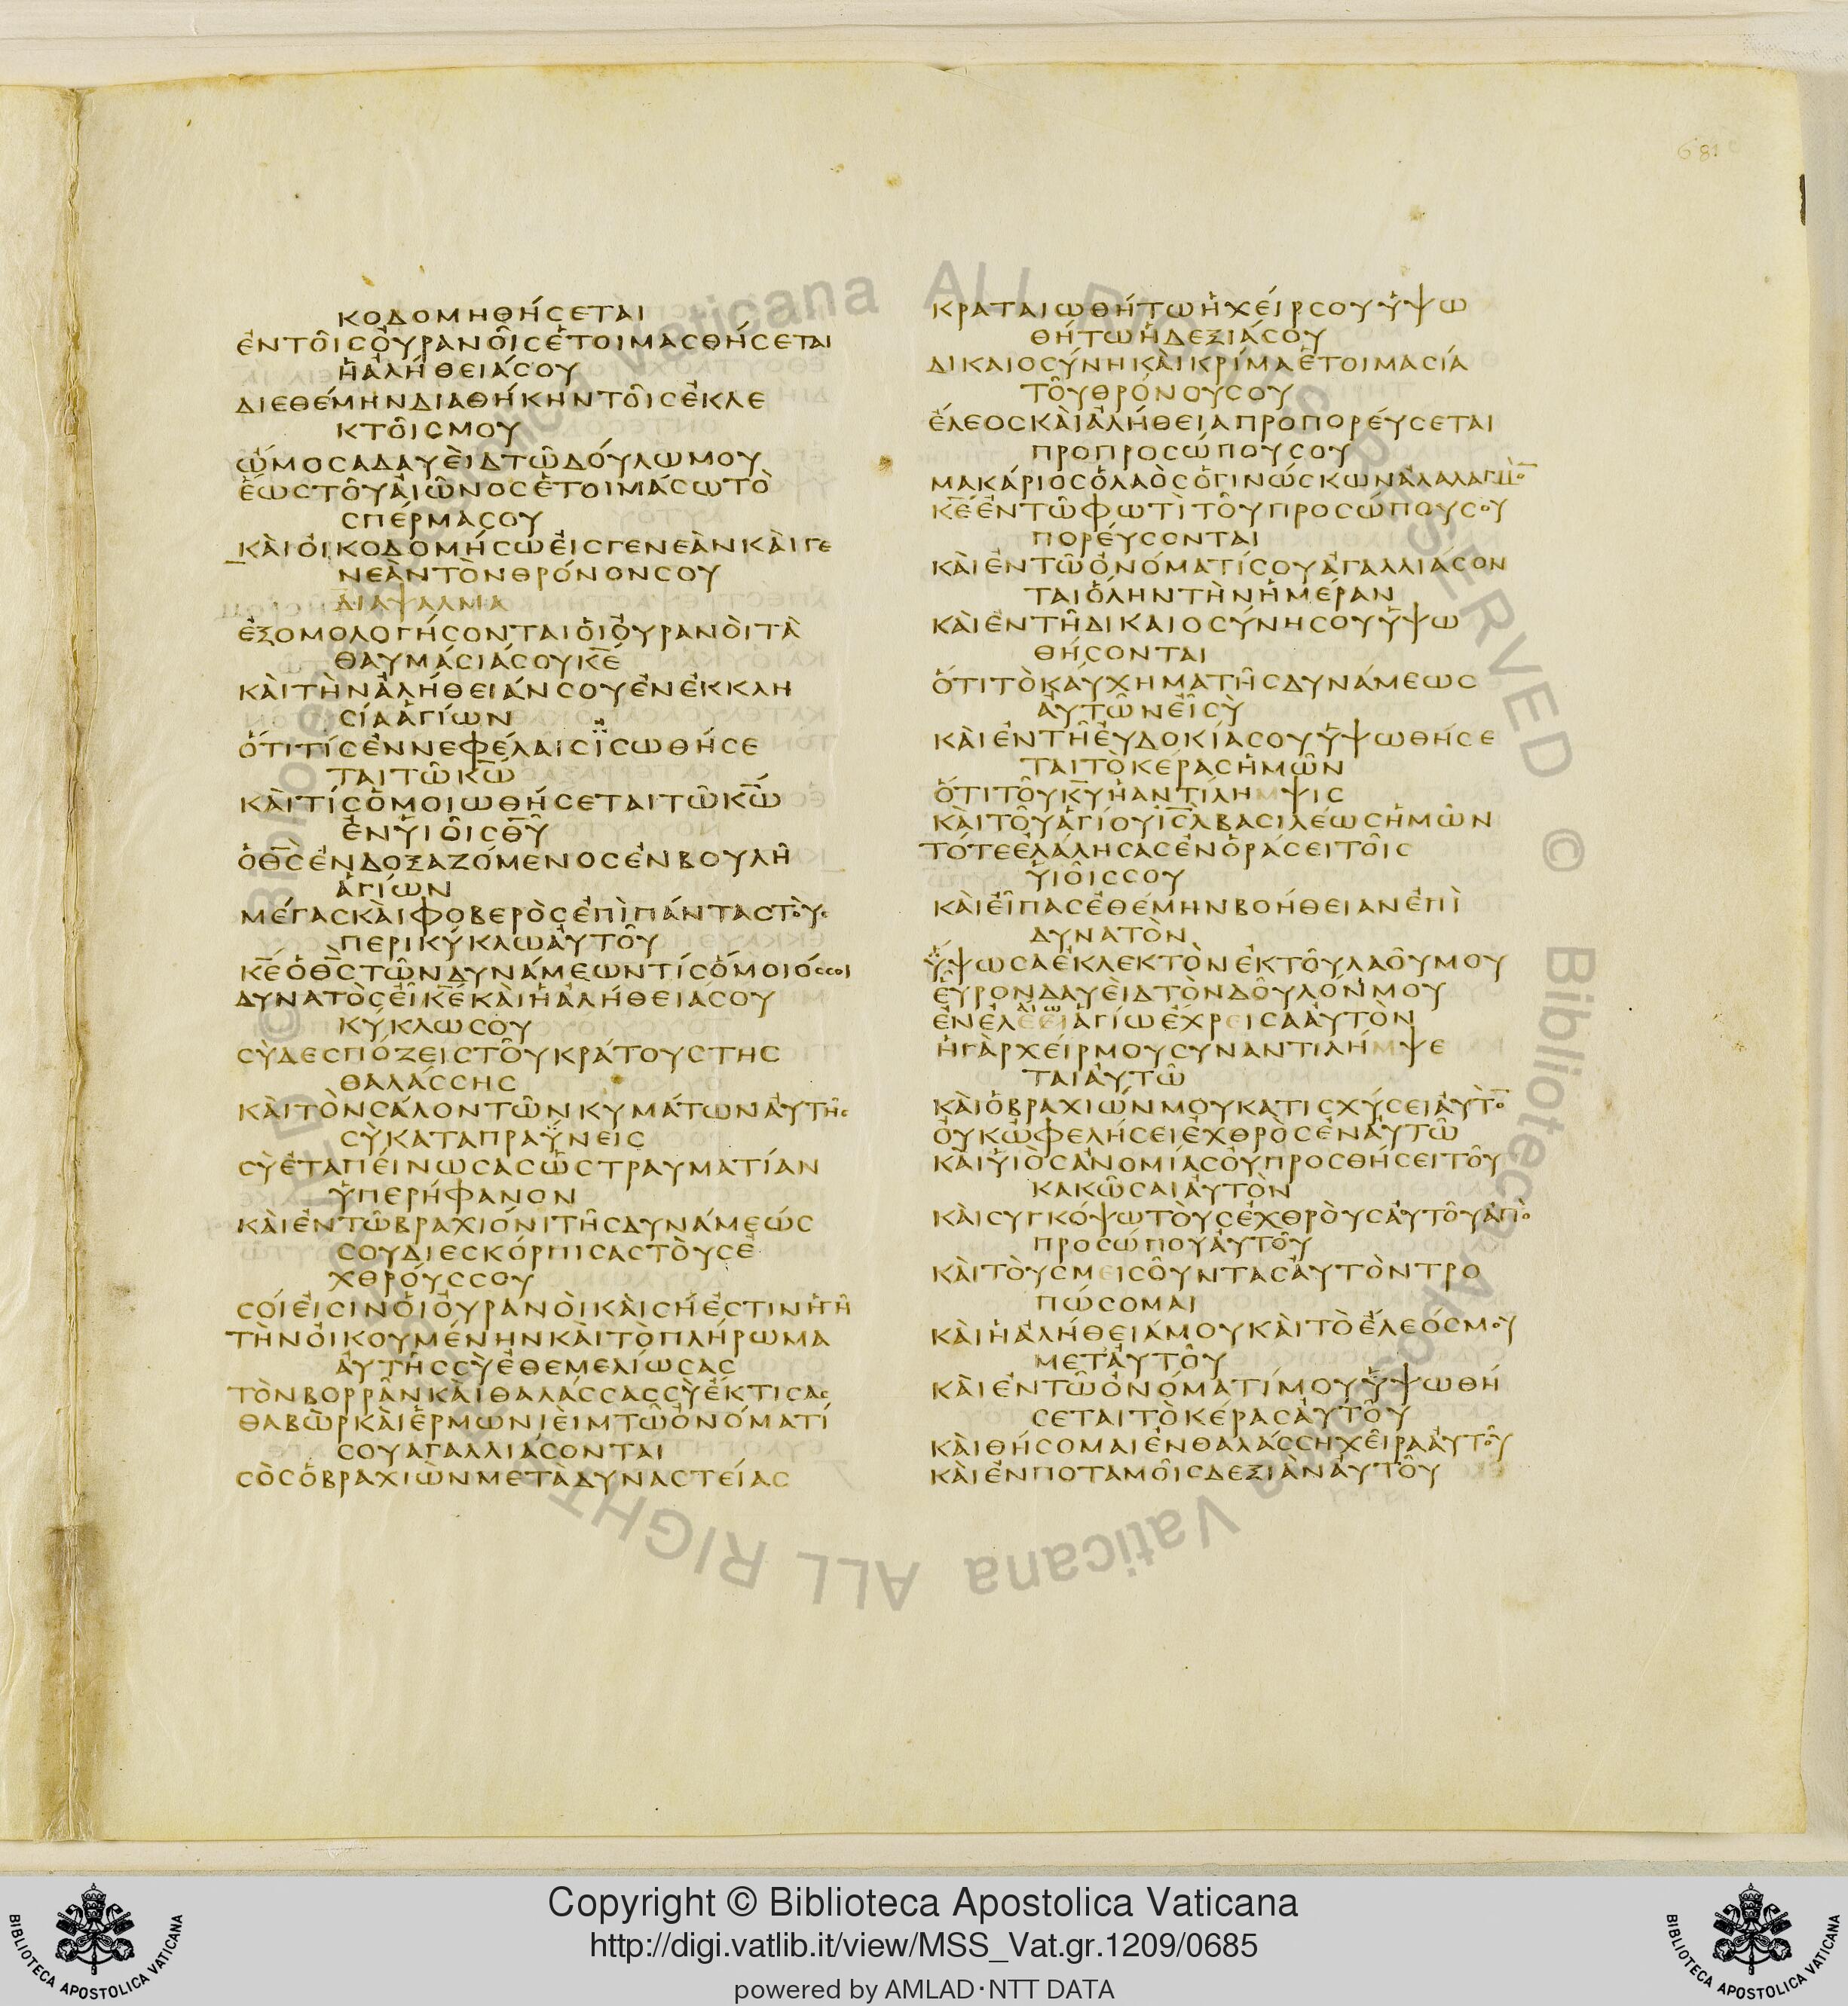 681
κοδομηθήσεται
ἐντοῖσοὐρανοῖσἑτοιμασθήσεται
ἡἀλήθειάσου
διεθέμηνδιαθήκηντοῖσἐκλε
κτοῖσμου
ὤμοσαδαυεὶδτῶδούλωμου
ἕωστοῦαἰῶνοσἑτοιμάσωτὸ
σπέρμασου
καὶοἰκοδομήσωεἰσγενεὰνκαὶγε
νεὰντὸνθρόνονσου
διαψαλμα
ἐξομολογήσονταιοἱοὐρανοὶτὰ
θαυμάσιάσουκ̅ε̅
καὶτὴνἀλήθειάνσουἐνἐκκλη
σίαἁγίων
ὅτιτίσἐννεφέλαισἰσωθήσε
ταιτῶκ̅ω̅
καὶτίσὁμοιωθήσεταιτῶκ̅ω̅
ἐνυἱοῖσθ̅υ̅
ὁθ̅σ̅ἐνδοξαζόμενοσἐνβουλῆ
ἁγίων
μέγασκαὶφοβερὸσἐπὶπάνταστοὺσ
περικύκλωαὐτοῦ
κ̅ε̅ὁθ̅σ̅τῶνδυνάμεωντίσὅμοιόσσοι
δυνατὸσεῖκ̅ε̅καὶἡἀλήθειάσου
κύκλωσου
σὺδεσπόζειστοῦκράτουστησ
θαλάσσησ
καὶτὸνσάλοντῶνκυμάτωναὐτῆσ
σὺκαταπραΰνεισ
σὺἐταπείνωσασὡστραυματίαν
ὑπερήφανον
καὶἐντῶβραχιόνιτῆσδυνάμεώσ
σουδιεσκόρπισαστοὺσἐ
χθρούσσου
σοίεἰσινοἱοὐρανοὶκαὶσήἐστινἡγῆ
τὴνοἰκουμένηνκαὶτὸπλήρωμα
αὐτῆσσὺἐθεμελίωσασ
τὸνβορρᾶνκαὶθαλάσσασσὺἔκτισασ
θαβὼρκαὶἑρμωνιεὶμτῶὀνόματί
σουἀγαλλιάσονται
σὸσὁβραχιὼνμετὰδυναστείασ
κραταιωθήτωἡχείρσουὑψω
θήτωἡδεξιάσου
δικαιοσύνηκαὶκρίμαἑτοιμασία
τοῦθρόνουσου
ἔλεοσκαὶἀλήθειαπροπορεύσεται
προπροσώπουσου
μακάριοσὁλαὸσὁγινώσκωνἀλαλαγμὸ̅
κ̅ε̅ἐντῶφωτὶτοῦπροσώπουσου
πορεύσονται
καὶἐντῶὀνόματίσουἀγαλλιάσον
ταιὅληντὴνἡμέραν
καὶἐντῆδικαιοσύνησουὑψω
θήσονται
ὅτιτὸκαύχηματῆσδυνάμεωσ
αὐτῶνεἶσὺ
καὶἐντῆεὐδοκίασουὑψωθήσε
ταιτὸκέρασἡμῶν
ὅτιτοῦκ̅υ̅ἡἀντίλημψισ
καὶτοῦἁγίουἰ̅σ̅λ̅βασιλέωσἡμῶν
τότεἐλάλησασἐνὁράσειτοῖσ
υἱοῖσσου
καὶεἶπασἐθέμηνβοήθειανἐπὶ
δυνατὸν
ὕψωσαἐκλεκτὸνἐκτοῦλαοῦμου
εὗρονδαυεὶδτὸνδοῦλόνμου
ἐνἐλέειἁγίωἔχρεισααὐτὸν
ἡγὰρχείρμουσυναντιλήμψε
ταιαὐτῶ
καὶὁβραχιώνμουκατισχύσειαὐτὸ̅
οὐκὠφελήσειἐχθρὸσἐναὐτῶ
καὶυἱὸσἀνομίασοὐπροσθήσειτοῦ
κακῶσαιαὐτὸν
καὶσυγκόψωτοὺσἐχθροὺσαὐτοῦἀπὸ
προσώπουαὐτοῦ
καὶτοὺσμεισοῦντασαὐτὸντρο
πώσομαι
καὶἡἀλήθειάμουκαὶτὸἔλεόσμου
μετ'αὐτοῦ
καὶἐντῶὀνόματίμουὑψωθή
σεταιτὸκέρασαὐτοῦ
καὶθήσομαιἐνθαλάσσηχεῖρααὐτοῦ
καὶἐνποταμοῖσδεξιὰναὐτοῦ
© Biblioteca Apostolica Vaticana ALL RIGHTS RESERVED © Biblioteca Apostolica Vaticana ALL RIGHTS RESERVED
BIBLIOTECA APOSTOLICA VATICANA
Copyright © Biblioteca Apostolica Vaticana
http://digi.vatlib.it/view/MSS_Vat.gr.1209/0685
powered by AMLAD·NTT DATA
BIBLIOTECA APOSTOLICA VATICANA